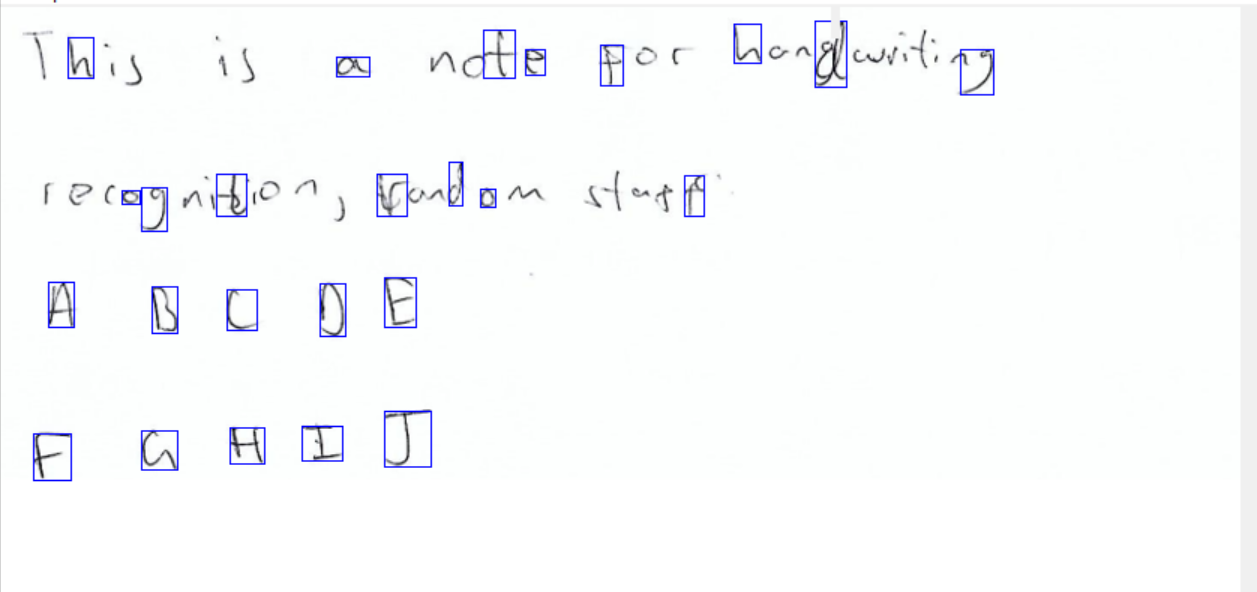 This is a note for handwriting
recognition, random stuff
A B C D E
F G H I J